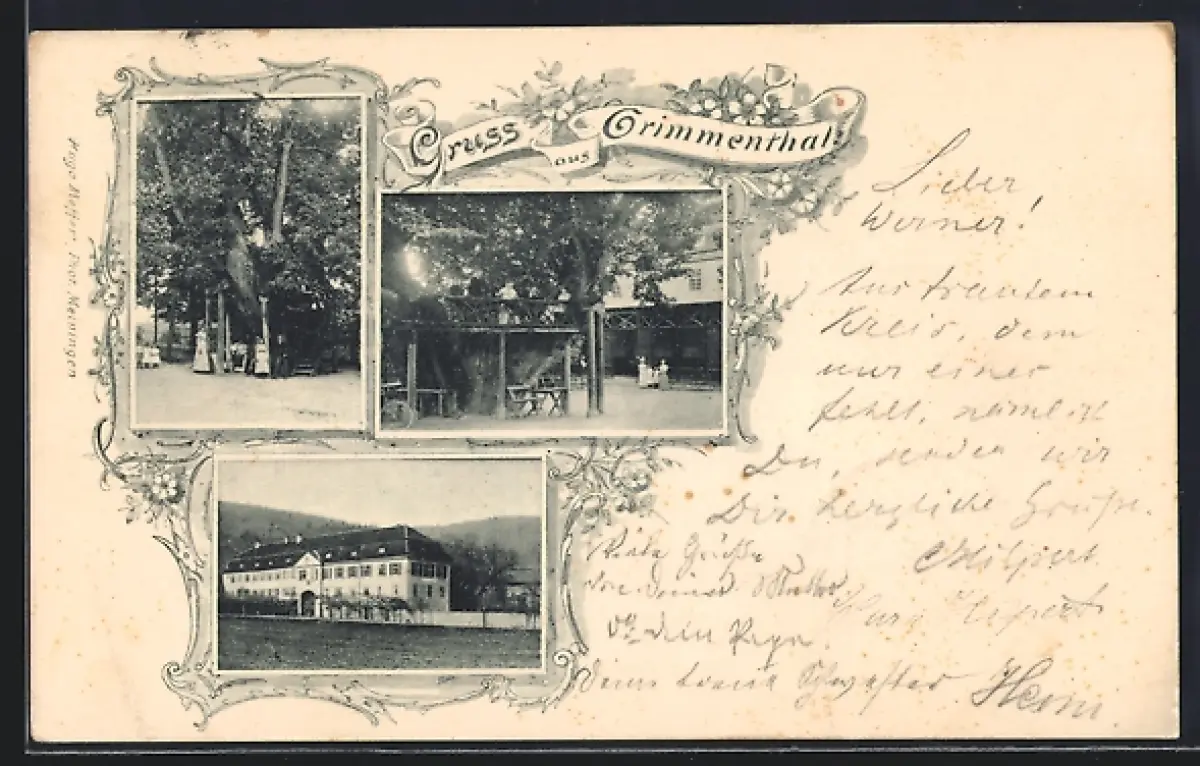 Gruss aus Grimmenthal!
Hugo Meffert, Phot. Meiningen
Lieber
Werner!
Aus trautem
Kreis, dem
nur einer
fehlt, nämlich
Du, senden wir
Dir herzliche Grüße.
Hilpert
Viele Grüße
von Deiner Mutter
Dein Papa
Deine treue Schwester